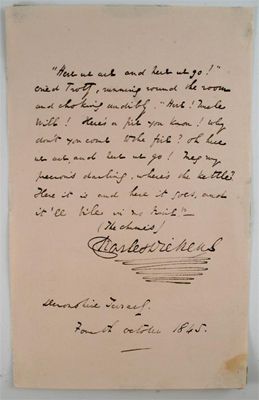 "Here we are and here we go!"
cried Trotty, running round the room
and choking audibly. "Here! Uncle
Will! Here's a fire you know! Why
don't you come to the fire? Oh here
we are, and here we go! Meg my
precious darling, where's the kettle?
Here it is and here it goes, and
it'll bile in no time"—
(The Chimes)
Charles Dickens
Devonshire Terrace
Fourth October 1845.